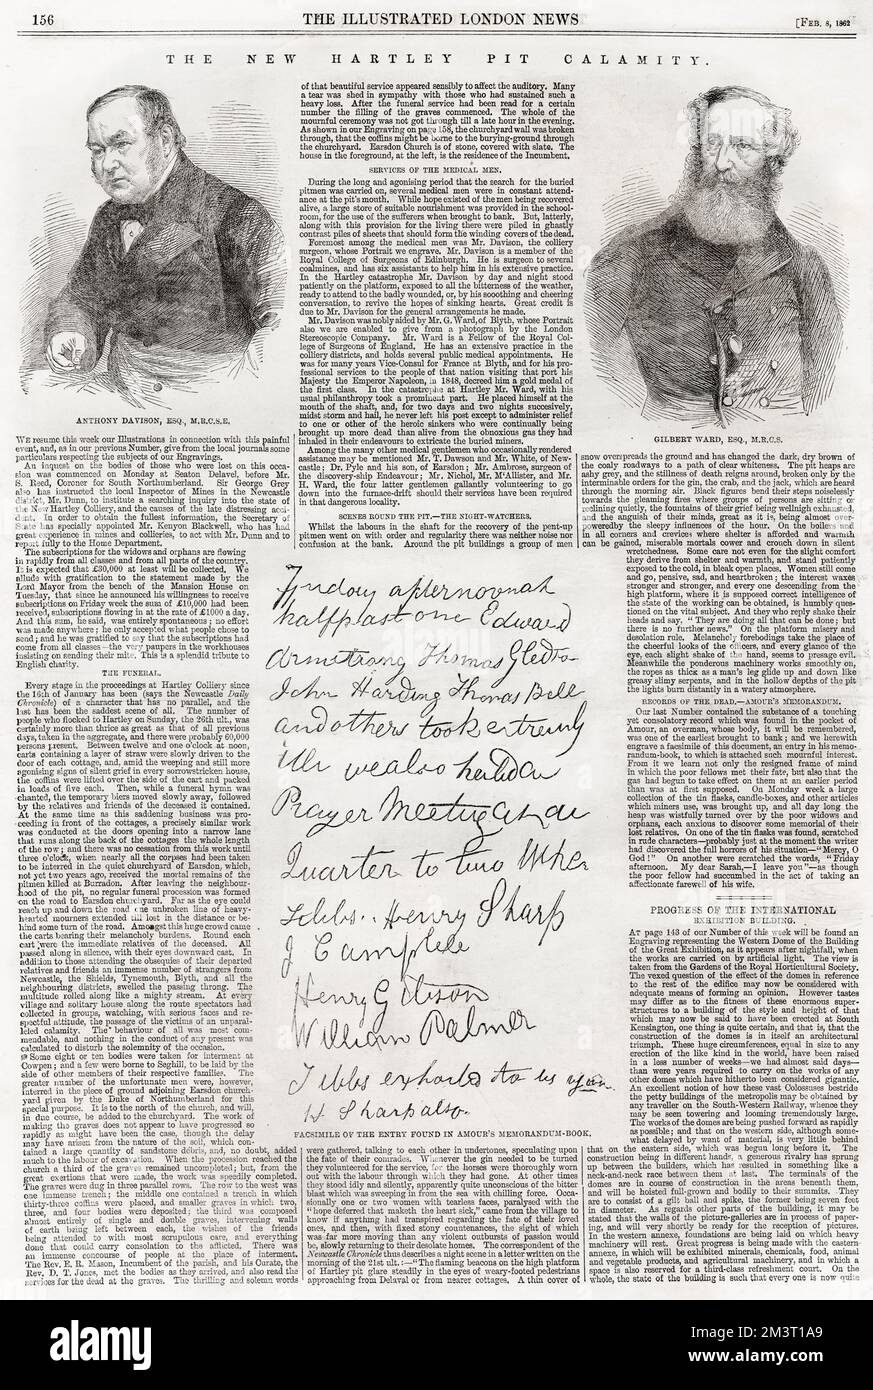 156
THE ILLUSTRATED LONDON NEWS
[FEB. 8, 1862
THE NEW HARTLEY PIT CALAMITY.
ANTHONY DAVISON, ESQ., M.R.C.S.E.
WE resume this week our Illustrations in connection with this painful
event, and, as in our previous Number, give from the local journals some
particulars respecting the subjects of our Engravings.
An inquest on the bodies of those who were lost on this occa-
sion was commenced on Monday at Seaton Delaval, before Mr.
S. Reed, Coroner for South Northumberland. Sir George Grey
also has instructed the local Inspector of Mines in the Newcastle
district, Mr. Dunn, to institute a searching inquiry into the state of
the New Hartley Colliery, and the causes of the late distressing acci-
dent. In order to obtain the fullest information, the Secretary of
State has specially appointed Mr. Kenyon Blackwell, who has had
great experience in mines and collieries, to act with Mr. Dunn and to
report fully to the Home Department.
The subscriptions for the widows and orphans are flowing
in rapidly from all classes and from all parts of the country.
It is expected that £30,000 at least will be collected. We
allude with gratification to the statement made by the
Lord Mayor from the bench of the Mansion House on
Tuesday, that since he announced his willingness to receive
subscriptions on Friday week the sum of £10,000 had been
received, subscriptions flowing in at the rate of £1000 a day.
And this sum, he said, was entirely spontaneous; no effort
was made anywhere; he only accepted what people chose to
send; and he was gratified to say that the subscriptions had
come from all classes—the very paupers in the workhouses
insisting on sending their mite. This is a splendid tribute to
English charity.
THE FUNERAL.
Every stage in the proceedings at Hartley Colliery since
the 16th of January has been (says the Newcastle Daily
Chronicle) of a character that has no parallel, and the
last has been the saddest scene of all. The number of
people who flocked to Hartley on Sunday, the 26th ult., was
certainly more than thrice as great as that of all previous
days, taken in the aggregate, and there were probably 60,000
persons present. Between twelve and one o'clock at noon,
carts containing a layer of straw were slowly driven to the
door of each cottage, and, amid the weeping and still more
agonising signs of silent grief in every sorrowstricken house,
the coffins were lifted over the side of the cart and packed
in loads of five each. Then, while a funeral hymn was
chanted, the temporary biers moved slowly away, followed
by the relatives and friends of the deceased it contained.
At the same time as this saddening business was pro-
ceeding in front of the cottages, a precisely similar work
was conducted at the doors opening into a narrow lane
that runs along the back of the cottages the whole length
of the row; and there was no cessation from this work until
three o'clock, when nearly all the corpses had been taken
to be interred in the quiet churchyard of Earsdon, which,
not yet two years ago, received the mortal remains of the
pitmen killed at Burradon. After leaving the neighbour-
hood of the pit, no regular funeral procession was formed
on the road to Earsdon churchyard. Far as the eye could
reach up and down the road one unbroken line of heavy-
hearted mourners extended till lost in the distance or be-
hind some turn of the road. Amongst this huge crowd came
the carts bearing their melancholy burdens. Round each
cart were the immediate relatives of the deceased. All
passed along in silence, with their eyes downward cast. In
addition to those attending the obsequies of their departed
relatives and friends an immense number of strangers from
Newcastle, the Shields, Tynemouth, Blyth, and all the
neighbouring districts, swelled the passing throng. The
multitude rolled along like a mighty stream. At every
village and solitary house along the route spectators had
collected in groups, watching, with serious faces and re-
spectful attitude, the passage of the victims of an unparal-
leled calamity. The behaviour of all was most com-
mendable, and nothing in the conduct of any present was
calculated to disturb the solemnity of the occasion.
Some eight or ten bodies were taken for interment at
Cowpen; and a few were borne to Seghill, to be laid by the
side of other members of their respective families. The
greater number of the unfortunate men were, however,
interred in the piece of ground adjoining Earsdon church-
yard given by the Duke of Northumberland for this
special purpose. It is to the north of the church, and will,
in due course, be added to the churchyard. The work of
making the graves does not appear to have progressed so
rapidly as might have been the case, though the delay
may have arisen from the nature of the soil, which con-
tained a large quantity of sandstone débris, and, no doubt, added
much to the labour of excavation. When the procession reached the
church a third of the graves remained uncompleted; but, from the
great exertions that were made, the work was speedily completed.
The graves were dug in three parallel rows. The row to the west was
one immense trench; the middle one contained a trench in which
thirty-three coffins were placed, and smaller graves in which two,
three, and four bodies were deposited; the third was composed
almost entirely of single and double graves, intervening walls
of earth being left between each, the wishes of the friends
being attended to with most scrupulous care, and everything
done that could carry consolation to the afflicted. There was
an immense concourse of people at the place of interment.
The Rev. E. R. Mason, Incumbent of the parish, and his Curate, the
Rev. D. T. Jones, met the bodies as they arrived, and also read the
services for the dead at the graves. The thrilling and solemn words
of that beautiful service appeared sensibly to affect the auditory. Many
a tear was shed in sympathy with those who had sustained such a
heavy loss. After the funeral service had been read for a certain
number the filling of the graves commenced. The whole of the
mournful ceremony was not got through till a late hour in the evening.
As shown in our Engraving on page 158, the churchyard wall was broken
through, that the coffins might be borne to the burying-ground through
the churchyard. Earsdon Church is of stone, covered with slate. The
house in the foreground, at the left, is the residence of the Incumbent.
SERVICES OF THE MEDICAL MEN.
During the long and agonising period that the search for the buried
pitmen was carried on, several medical men were in constant attend-
ance at the pit's mouth. While hope existed of the men being recovered
alive, a large store of suitable nourishment was provided in the school-
room, for the use of the sufferers when brought to bank. But, latterly,
along with this provision for the living there were piled in ghastly
contrast piles of sheets that should form the winding covers of the dead.
Foremost among the medical men was Mr. Davison, the colliery
surgeon, whose Portrait we engrave. Mr. Davison is a member of the
Royal College of Surgeons of Edinburgh. He is surgeon to several
coalmines, and has six assistants to help him in his extensive practice.
In the Hartley catastrophe Mr. Davison by day and night stood
patiently on the platform, exposed to all the bitterness of the weather,
ready to attend to the badly wounded, or, by his sooothing and cheering
conversation, to revive the hopes of sinking hearts. Great credit is
due to Mr. Davison for the general arrangements he made.
Mr. Davison was nobly aided by Mr. G. Ward, of Blyth, whose Portrait
also we are enabled to give from a photograph by the London
Stereoscopic Company. Mr. Ward is a Fellow of the Royal Col-
lege of Surgeons of England. He has an extensive practice in the
colliery districts, and holds several public medical appointments. He
was for many years Vice-Consul for France at Blyth, and for his pro-
fessional services to the people of that nation visiting that port his
Majesty the Emperor Napoleon, in 1848, decreed him a gold medal of
the first class. In the catastrophe at Hartley Mr. Ward, with his
usual philanthropy took a prominent part. He placed himself at the
mouth of the shaft, and, for two days and two nights succesively,
midst storm and hail, he never left his post except to administer relief
to one or other of the heroic sinkers who were continually being
brought up more dead than alive from the obnoxious gas they had
inhaled in their endeavours to extricate the buried miners.
Among the many other medical gentlemen who occasionally rendered
assistance may be mentioned Mr. T. Dawson and Mr. White, of New-
castle; Dr. Pyle and his son, of Earsdon; Mr. Ambrose, surgeon of
the discovery-ship Endeavour; Mr. Nichol, Mr. M'Allister, and Mr.
H. Ward, the four latter gentlemen gallantly volunteering to go
down into the furnace-drift should their services have been required
in that dangerous locality.
SCENES ROUND THE PIT.—THE NIGHT-WATCHERS.
Whilst the labours in the shaft for the recovery of the pent-up
pitmen went on with order and regularity there was neither noise nor
confusion at the bank. Around the pit buildings a group of men
Friday afternoon at
halfpast one Edward
Armstrong Thomas Gledson
John Harding Thomas Bell
and others took extremly
ill we also had a
Prayer Meeting at a
Quarter to two When
Tibbs.. Henry Sharp
J Campbell
Henry Gibson
William Palmer
Tibbs exhorted to us again
H Sharp also.
FACSIMILE OF THE ENTRY FOUND IN AMOUR'S MEMORANDUM-BOOK.
were gathered, talking to each other in undertones, speculating upon
the fate of their comrades. Whenever the gin needed to be turned
they volunteered for the service, for the horses were thoroughly worn
out with the labour through which they had gone. At other times
they stood idly and silently, apparently quite unconscious of the bitter
blast which was sweeping in from the sea with chilling force. Occa-
sionally one or two women with tearless faces, paralysed with the
"hope deferred that maketh the heart sick," came from the village to
know if anything had transpired regarding the fate of their loved
ones, and, then, with fixed stony countenances, the sight of which
was far more moving than any violent outbursts of passion would
be, slowly returning to their desolate homes. The correspondent of the
Newcastle Chronicle thus describes a night scene in a letter written on the
morning of the 21st ult.:—"The flaming beacons on the high platform
of Hartley pit glare steadily in the eyes of weary-footed pedestrians
approaching from Delaval or from nearer cottages. A thin cover of
GILBERT WARD, ESQ., M.R.C.S.
snow overspreads the ground and has changed the dark, dry brown of
the coaly roadways to a path of clear whiteness. The pit heaps are
ashy grey, and the stillness of death reigns around, broken only by the
interminable orders for the gin, the crab, and the jack, which are heard
through the morning air. Black figures bend their steps noiselessly
towards the gleaming fires where groups of persons are sitting or
reclining quietly, the fountains of their grief being wellnigh exhausted,
and the anguish of their minds, great as it is, being almost over-
powered by the sleepy influences of the hour. On the boilers and
in all corners and crevices where shelter is afforded and warmth
can be gained, miserable mortals cower and crouch down in silent
wretchedness. Some care not even for the slight comfort
they derive from shelter and warmth, and stand patiently
exposed to the cold, in bleak open places. Women still come
and go, pensive, sad, and heartbroken; the interest waxes
stronger and stronger, and every one descending from the
high platform, where it is supposed correct intelligence of
the state of the working can be obtained, is humbly ques-
tioned on the vital subject. And they who reply shake their
heads and say, "They are doing all that can be done; but
there is no further news." On the platform misery and
desolation rule. Melancholy forebodings take the place of
the cheerful looks of the officers, and every glance of the
eye, each slight shake of the hand, seems to presage evil.
Meanwhile the ponderous machinery works smoothly on,
the ropes as thick as a man's leg glide up and down like
greasy slimy serpents, and in the hollow depths of the pit
the lights burn distantly in a watery atmosphere.
RECORDS OF THE DEAD.—AMOUR'S MEMORANDUM.
Our last Number contained the substance of a touching
yet consolatory record which was found in the pocket of
Amour, an overman, whose body, it will be remembered,
was one of the earliest brought to bank; and we herewith
engrave a facsimile of this document, an entry in his memo-
randum-book, to which is attached such mournful interest.
From it we learn not only the resigned frame of mind
in which the poor fellows met their fate, but also that the
gas had begun to take effect on them at an earlier period
than was at first supposed. On Monday week a large
collection of the tin flasks, candle-boxes, and other articles
which miners use, was brought up, and all day long the
heap was wistfully turned over by the poor widows and
orphans, each anxious to discover some memorial of their
lost relatives. On one of the tin flasks was found, scratched
in rude characters—probably just at the moment the writer
had discovered the full horrors of his situation—"Mercy, O
God!" On another were scratched the words, "Friday
afternoon. My dear Sarah,—I leave you"—as though
the poor fellow had succumbed in the act of taking an
affectionate farewell of his wife.
PROGRESS OF THE INTERNATIONAL
EXHIBITION BUILDING.
AT page 143 of our Number of this week will be found an
Engraving representing the Western Dome of the Building
of the Great Exhibition, as it appears after nightfall, when
the works are carried on by artificial light. The view is
taken from the Gardens of the Royal Horticultural Society.
The vexed question of the effect of the domes in reference
to the rest of the edifice may now be considered with
adequate means of forming an opinion. However tastes
may differ as to the fitness of these enormous super-
structures to a building of the style and height of that
which may now be said to have been erected at South
Kensington, one thing is quite certain, and that is, that the
construction of the domes is in itself an architectural
triumph. These huge circumferences, equal in size to any
erection of the like kind in the world, have been raised
in a less number of weeks—we had almost said days—
than were years required to carry on the works of any
other domes which have hitherto been considered gigantic.
An excellent notion of how these vast Colossuses bestride
the petty buildings of the metropolis may be obtained by
any traveller on the South-Western Railway, whence they
may be seen towering and looming tremendously large.
The works of the domes are being pushed forward as rapidly
as possible; and that on the western side, although some-
what delayed by want of material, is very little behind
that on the eastern side, which was begun long before it. The
construction being in different hands, a generous rivalry has sprung
up between the builders, which has resulted in something like a
neck-and-neck race between them at last. The terminals of the
domes are in course of construction in the areas beneath them,
and will be hoisted full-grown and bodily to their summits. They
are to consist of a gilt ball and spike, the former being seven feet
in diameter. As regards other parts of the building, it may be
stated that the walls of the picture-galleries are in process of paper-
ing, and will very shortly be ready for the reception of pictures.
In the western annexe, foundations are being laid on which heavy
machinery will rest. Great progress is being made with the eastern
annexe, in which will be exhibited minerals, chemicals, food, animal
and vegetable products, and agricultural machinery, and in which a
space is also reserved for a third-class refreshment court. On the
whole, the state of the building is such that every one is now quite
alamy
Image ID: 2M3T1A9
www.alamy.com